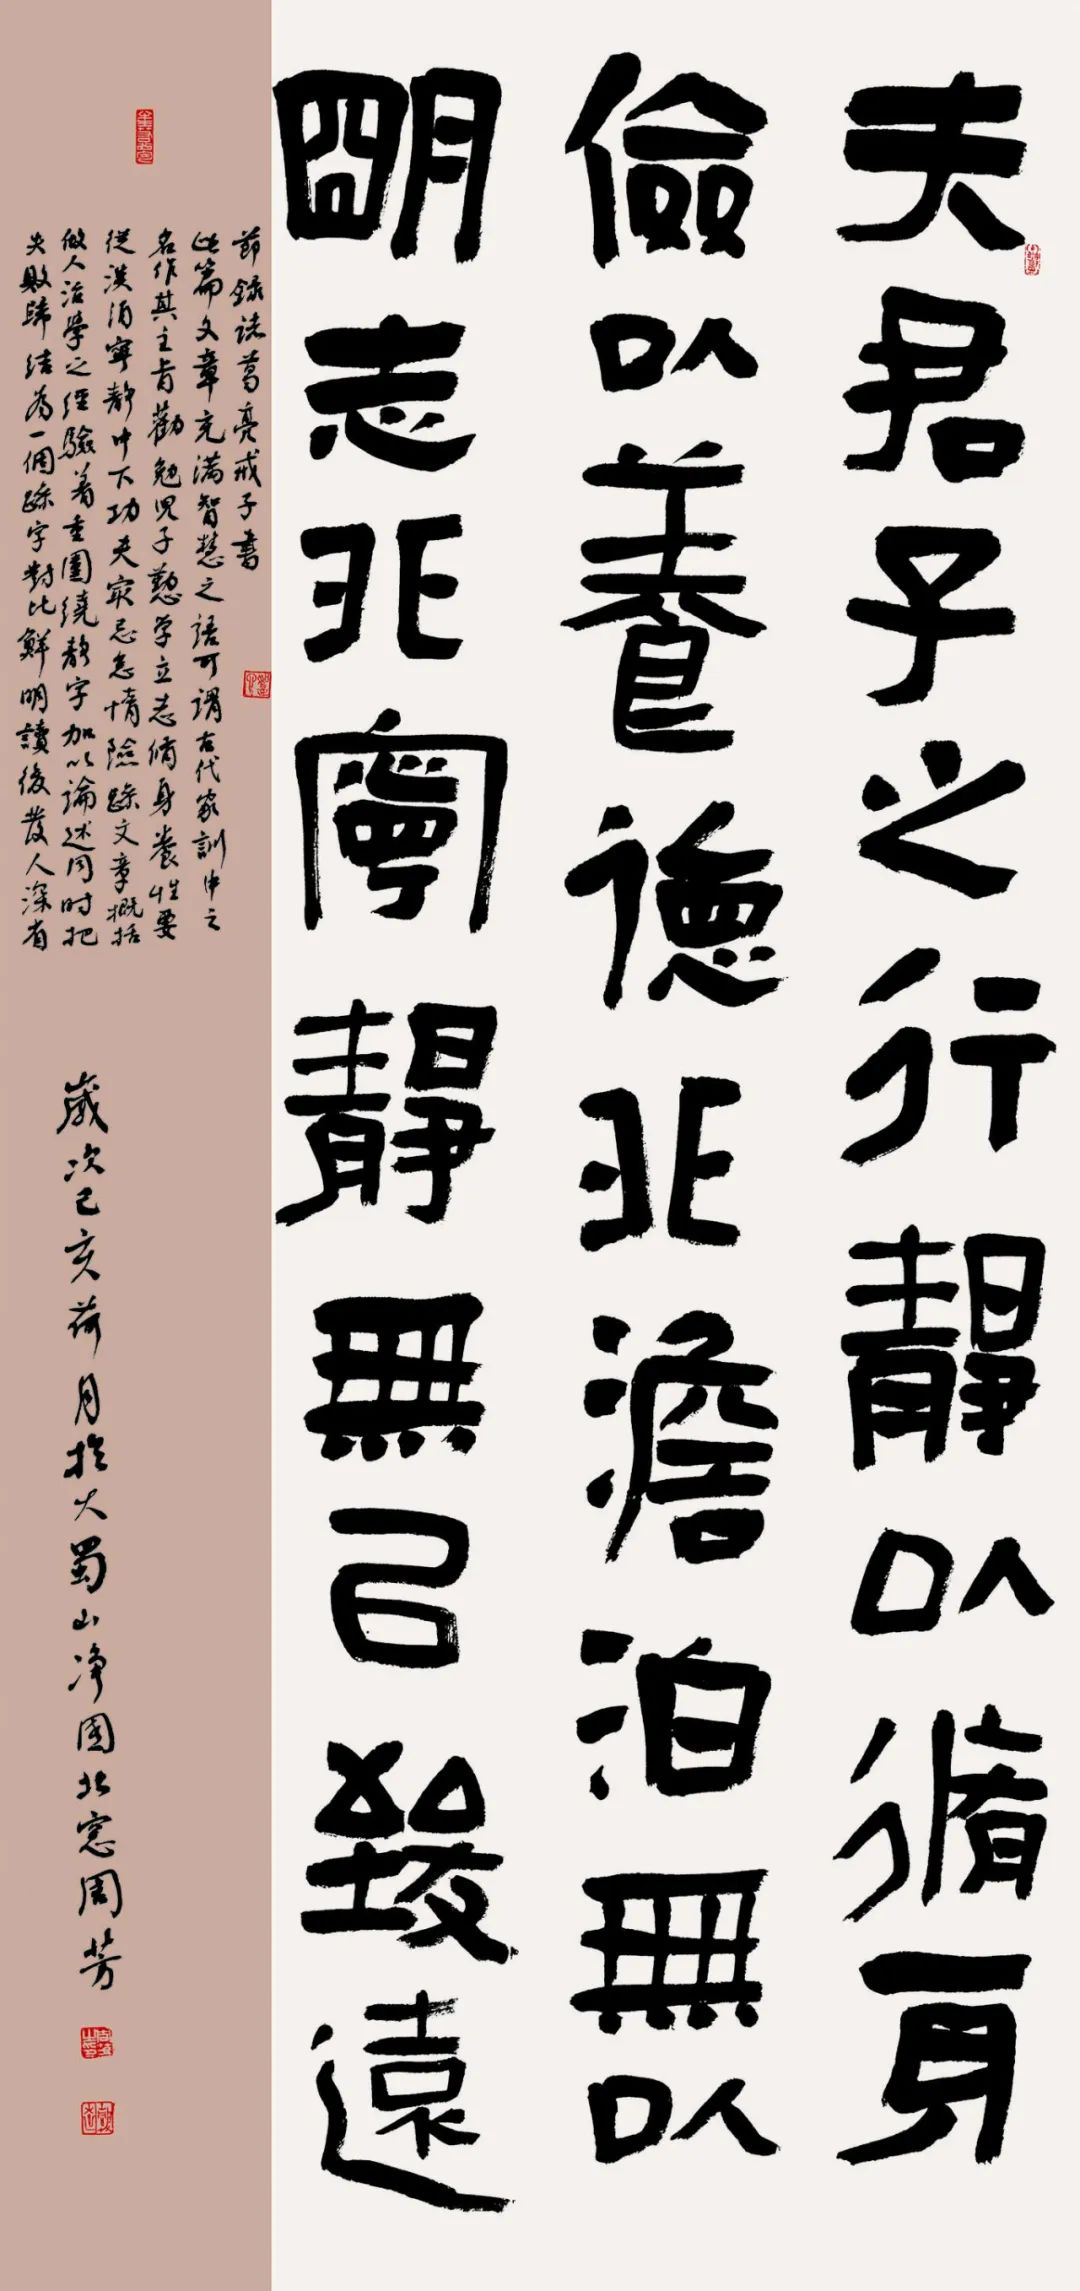 夫君子之行靜以脩身
儉以養德非澹泊無以
明志非寧靜無㠯致遠
節錄諸葛亮戒子書
此篇文章充滿智慧之語可謂古代家訓中之
名作其主旨勸勉兒子懃学立志脩身養性要
從淡泊寧靜中下功夫最忌怠惰險躁文章概括
做人治學之經驗着重圍繞靜字加以論述同时把
失敗歸結為一個躁字對比鮮明讀後發人深省
歲次己亥荷月於大蜀山淨園北窻周芳